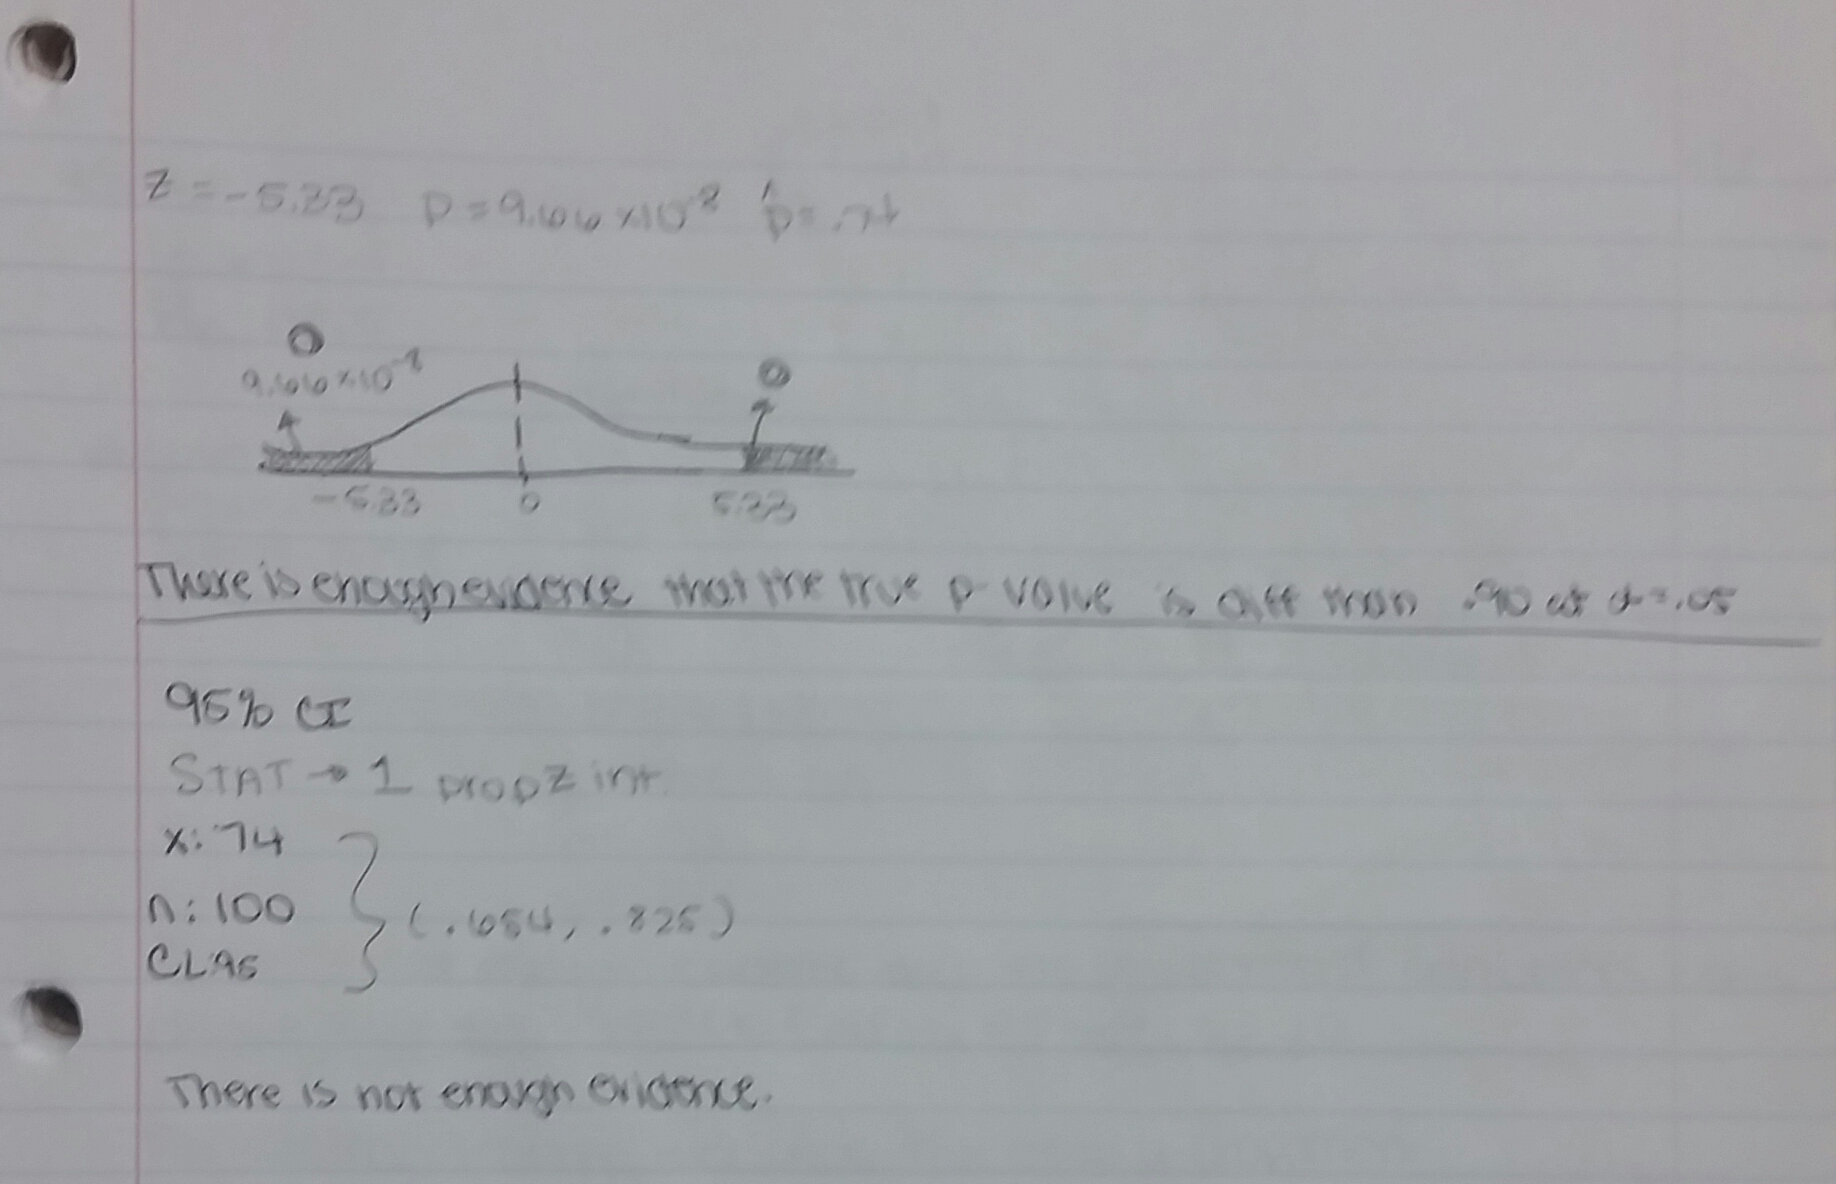 z = -5.33 p = 9.66 x10^-8 p̂ = .74
0 0
9.66 x10^-8
-5.33 0 5.33
There is enough evidence that the true p-value is diff than .90 at α = .05
95% CI
STAT → 1 prop Z int
x: 74
n: 100 (.654, .825)
CL 95
There is not enough evidence.